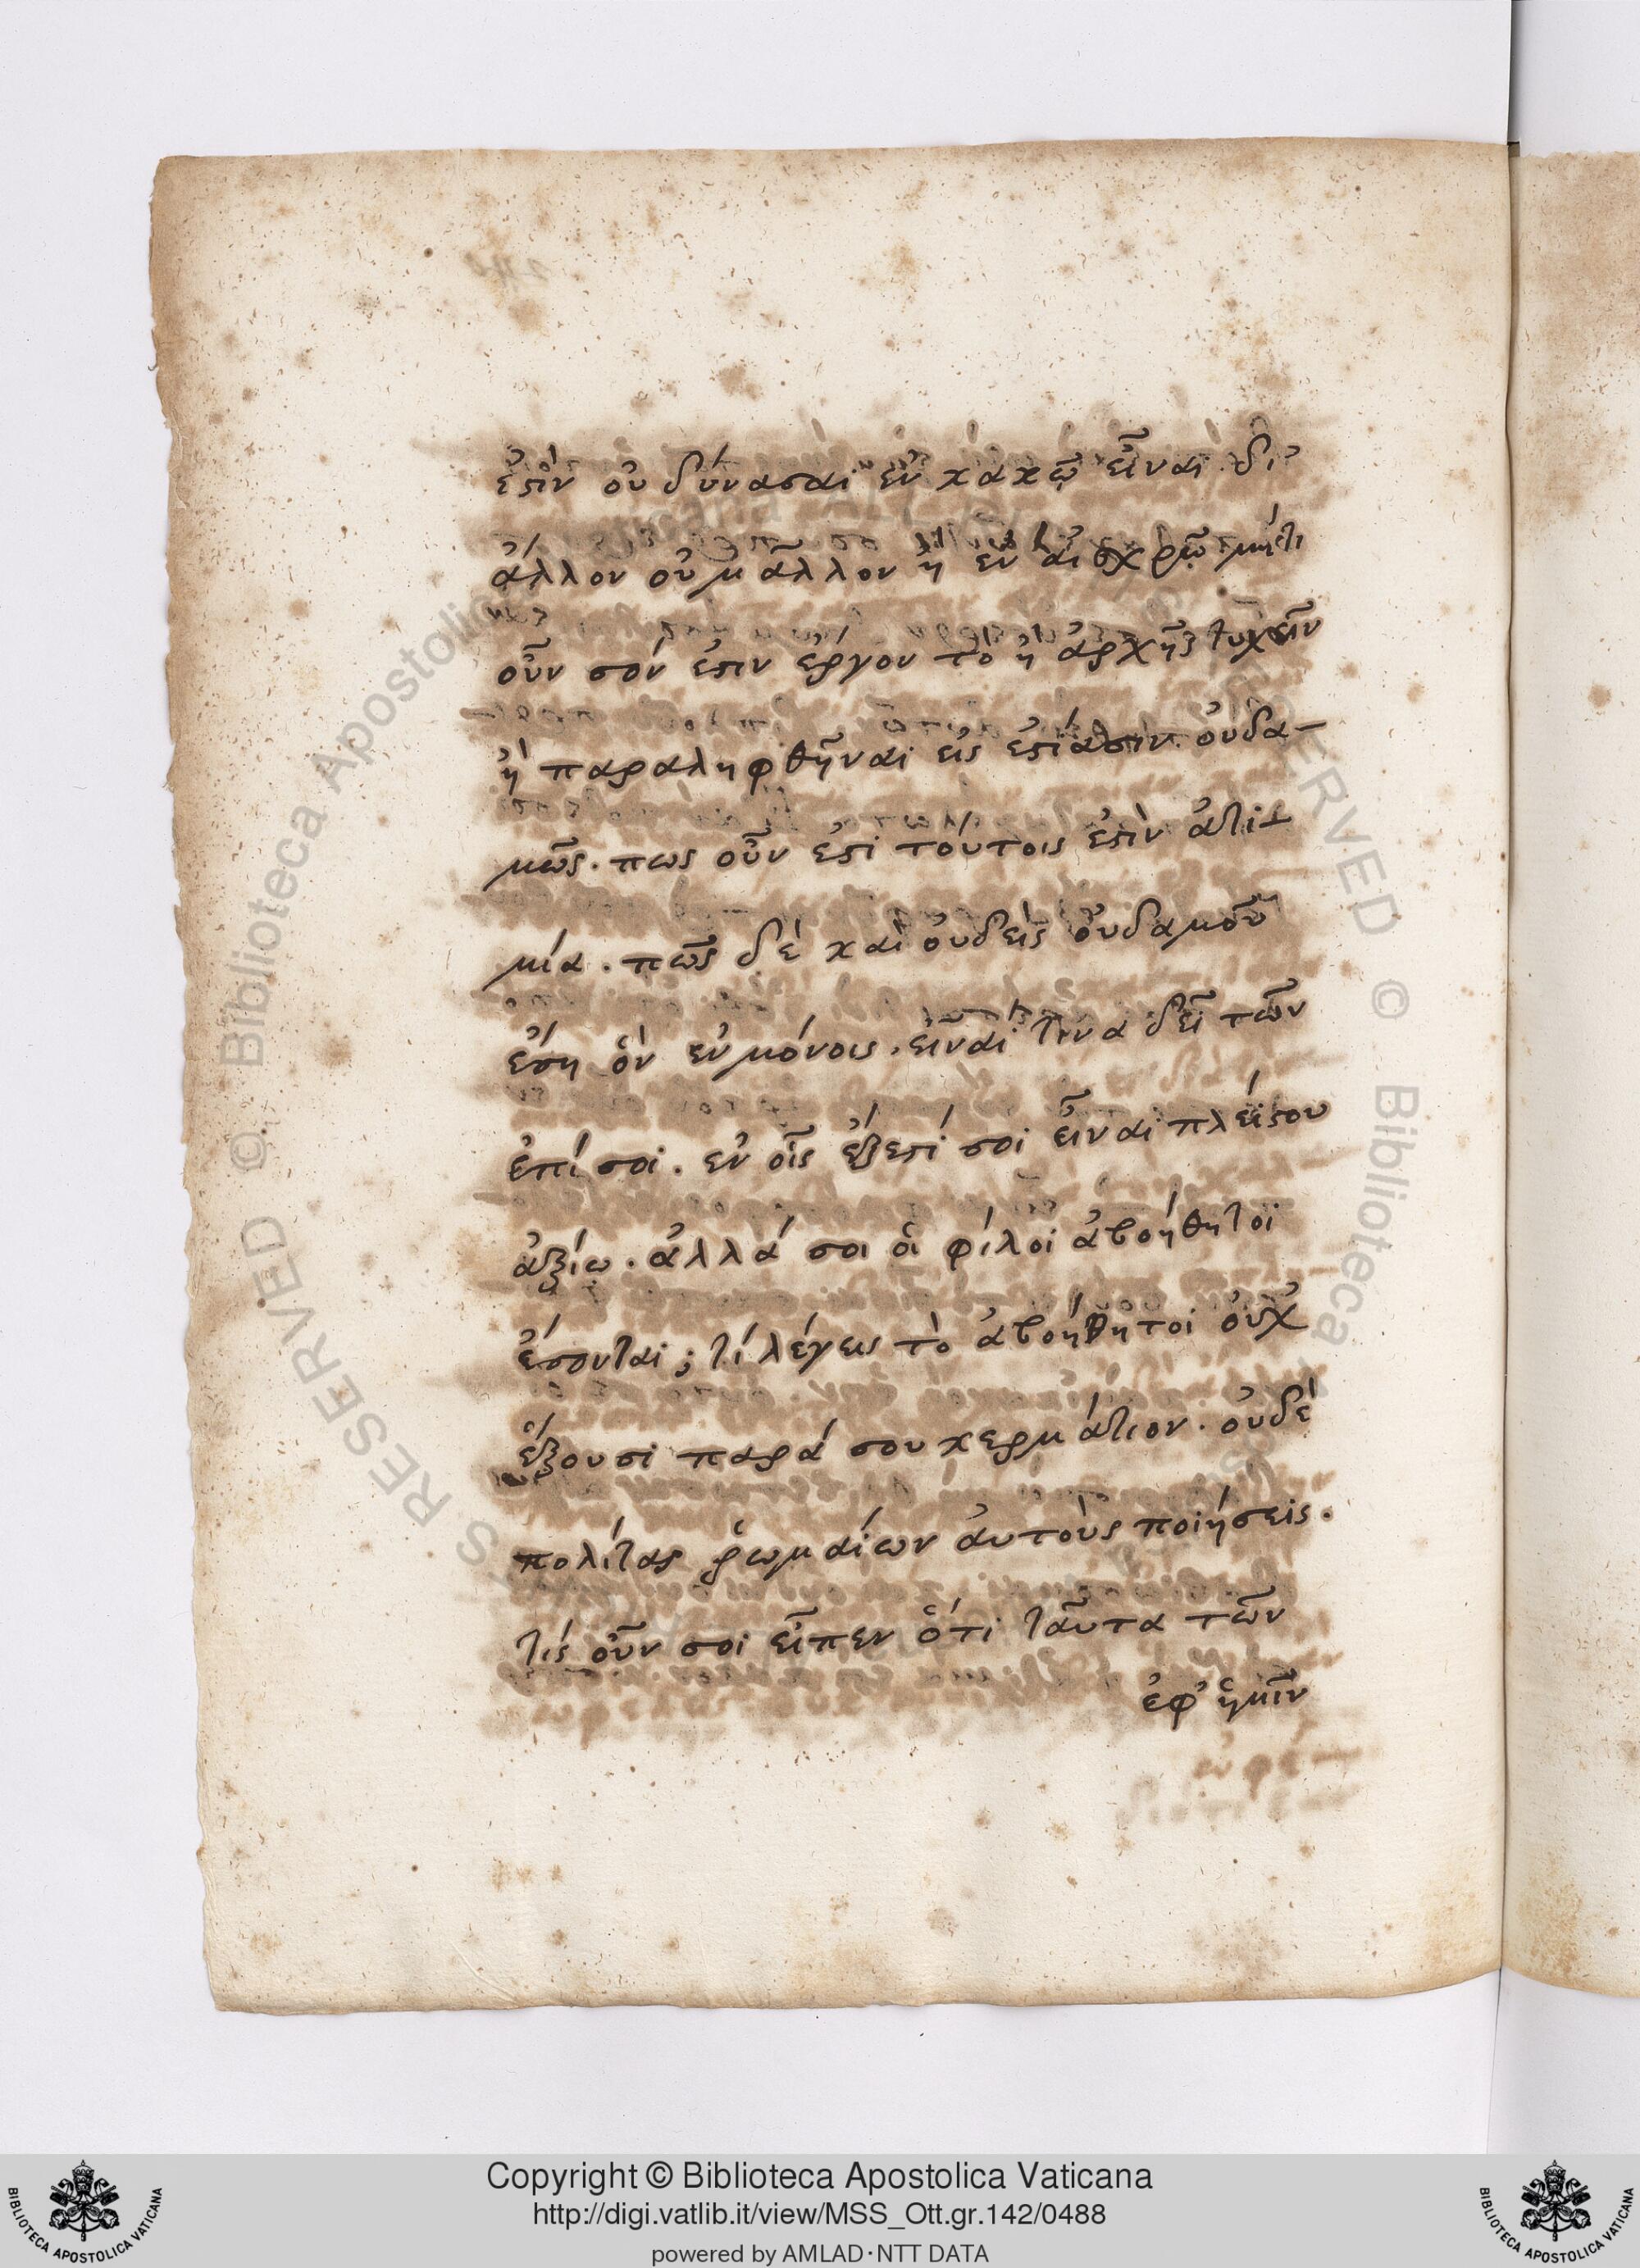 ἐστὶν οὐ δύνασαι ἐν κακῷ εἶναι. δι'
ἄλλον οὐ μᾶλλον ἢ ἐν αἰσχρῷ μήτι
οὖν σόν ἐστιν ἔργον τὸ ἢ ἀρχῆς τυχεῖν
ἢ παραληφθῆναι εἰς ἑστίασιν. οὐδα-
μῶς. πως οὖν ἔτι τούτοις ἐστὶν ἀτι-
μία. πῶς δὲ καὶ οὐδεὶς οὐδαμοῦ
ἔση ὃν ἐν μόνοις. εἶναί τινα δεῖ τῶν
ἐπί σοι. ἐν οἷς ἔξεστί σοι εἶναι πλείστου
ἀξίῳ. ἀλλά σοι οἱ φίλοι ἀβοήθητοι
ἔσονται; τί λέγεις τὸ ἀβοήθητοι οὐχ
ἕξουσι παρά σου κερμάτιον. οὐδὲ
πολίτας ῥωμαίων αὐτοὺς ποιήσεις.
τίς οὖν σοι εἶπεν ὅτι ταῦτα τῶν
ἐφ' ἡμῖν
Copyright © Biblioteca Apostolica Vaticana
http://digi.vatlib.it/view/MSS_Ott.gr.142/0488
powered by AMLAD·NTT DATA
BIBLIOTECA APOSTOLICA VATICANA
BIBLIOTECA APOSTOLICA VATICANA